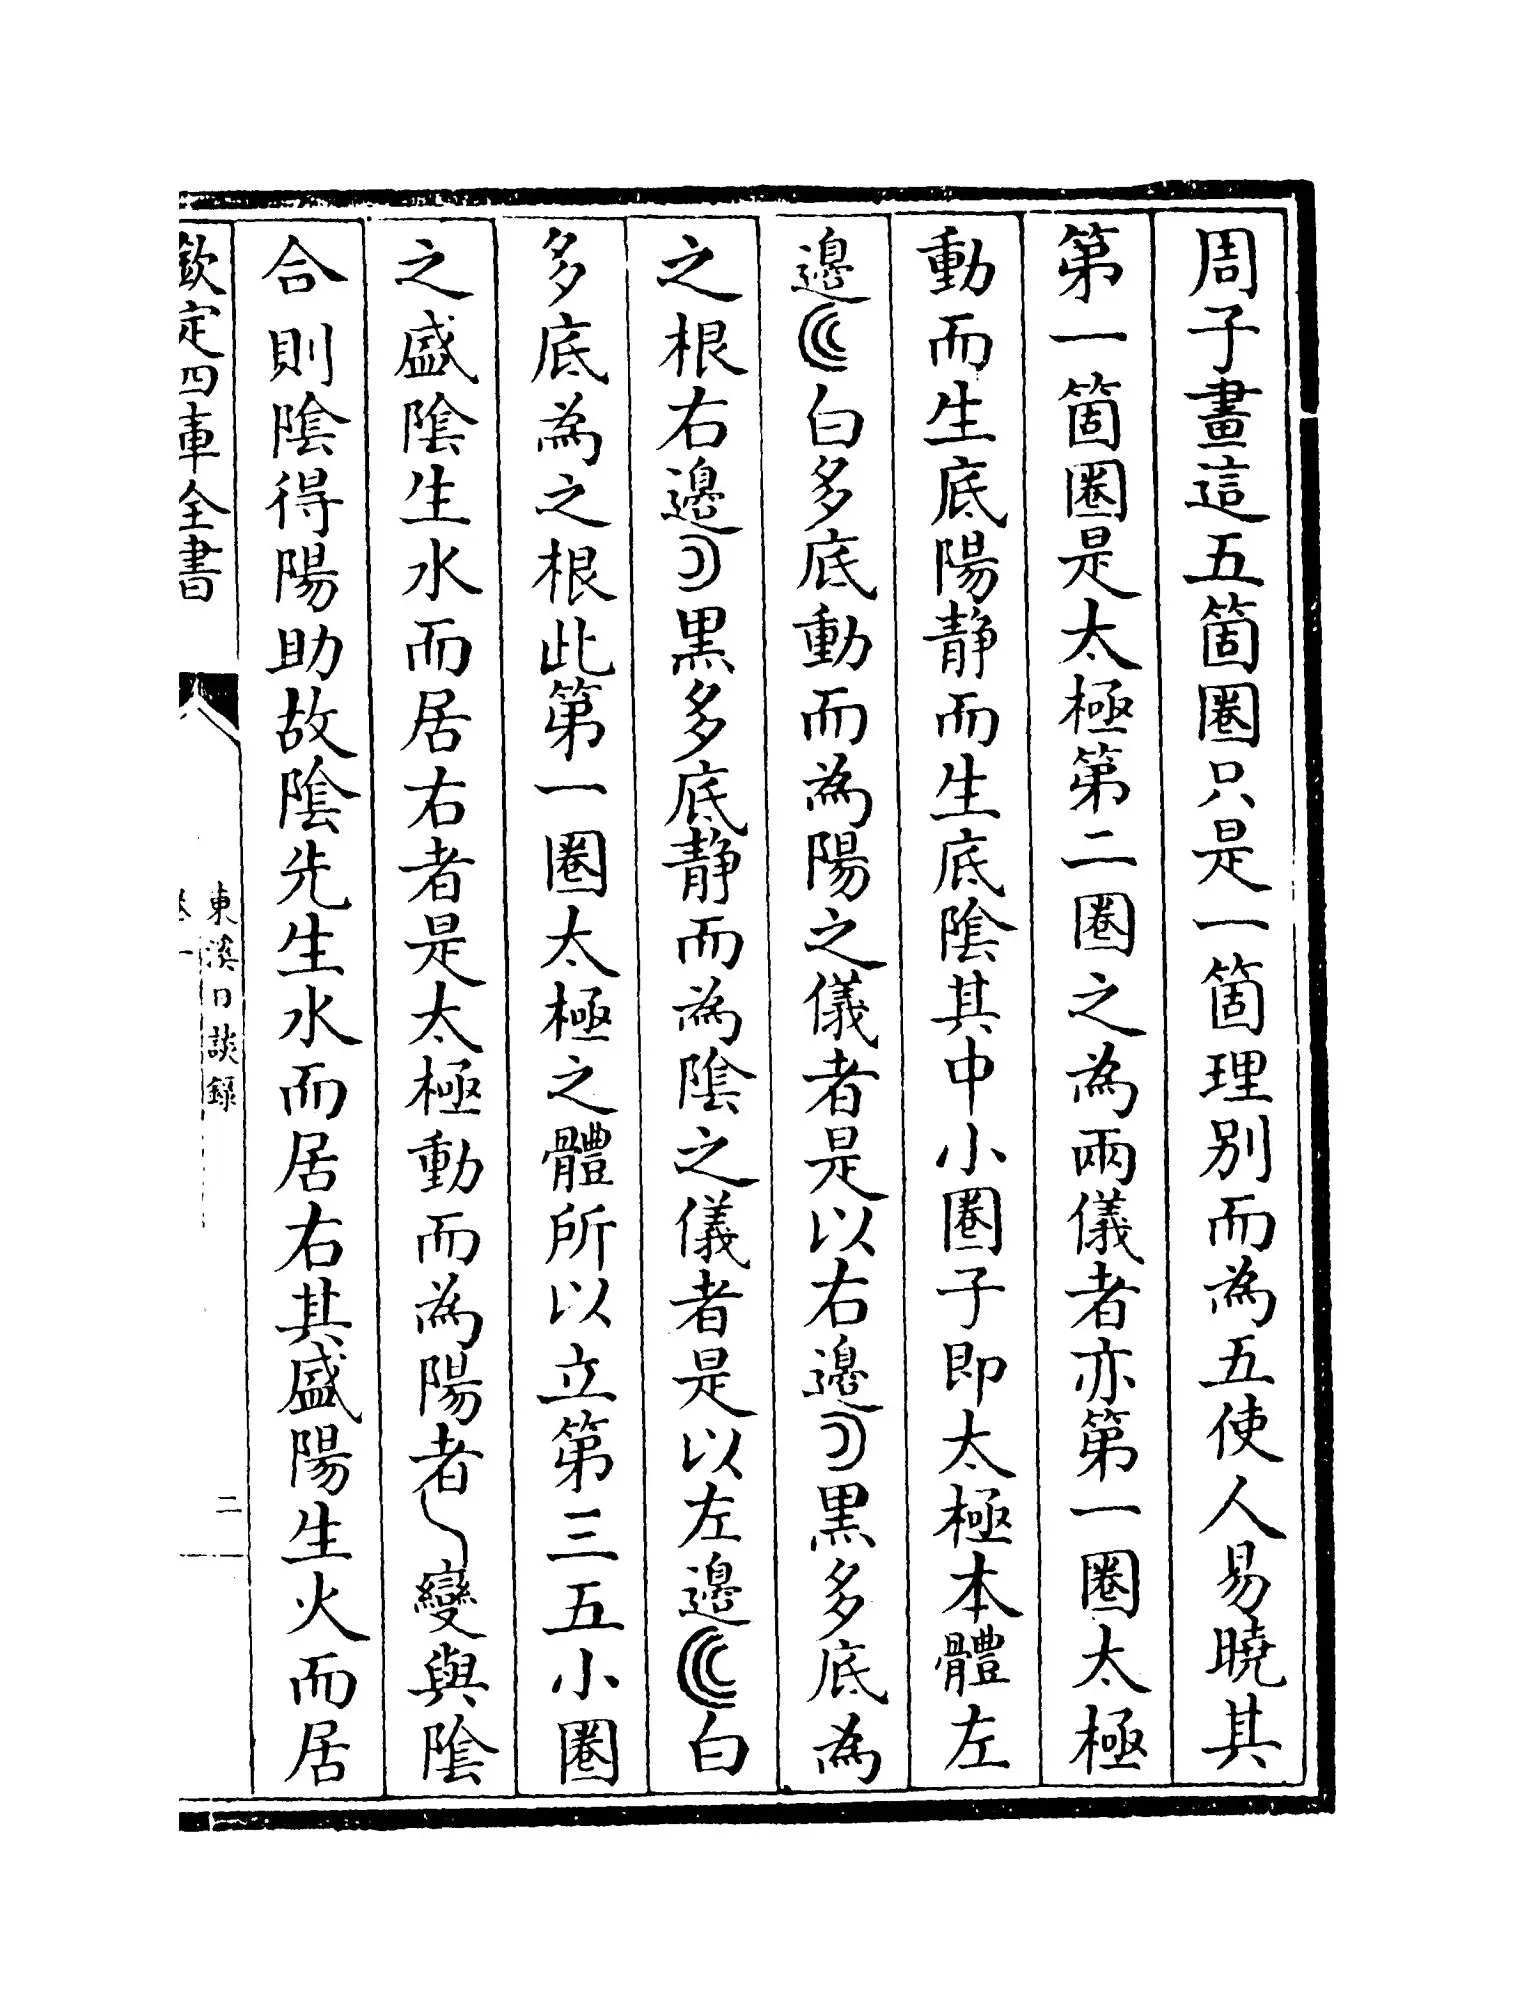 周子畫這五箇圈只是一箇理別而為五使人易曉其
第一箇圈是太極第二圈之為兩儀者亦第一圈太極
動而生底陽靜而生底陰其中小圈子即太極本體左
邊白多底動而為陽之儀者是以右邊黑多底為
之根右邊黑多底靜而為陰之儀者是以左邊白
多底為之根此第一圈太極之體所以立第三五小圈
之盛陰生水而居右者是太極動而為陽者變與陰
合則陰得陽助故陰先生水而居右其盛陽生火而居
欽定四庫全書
東溪日談錄
卷一
二